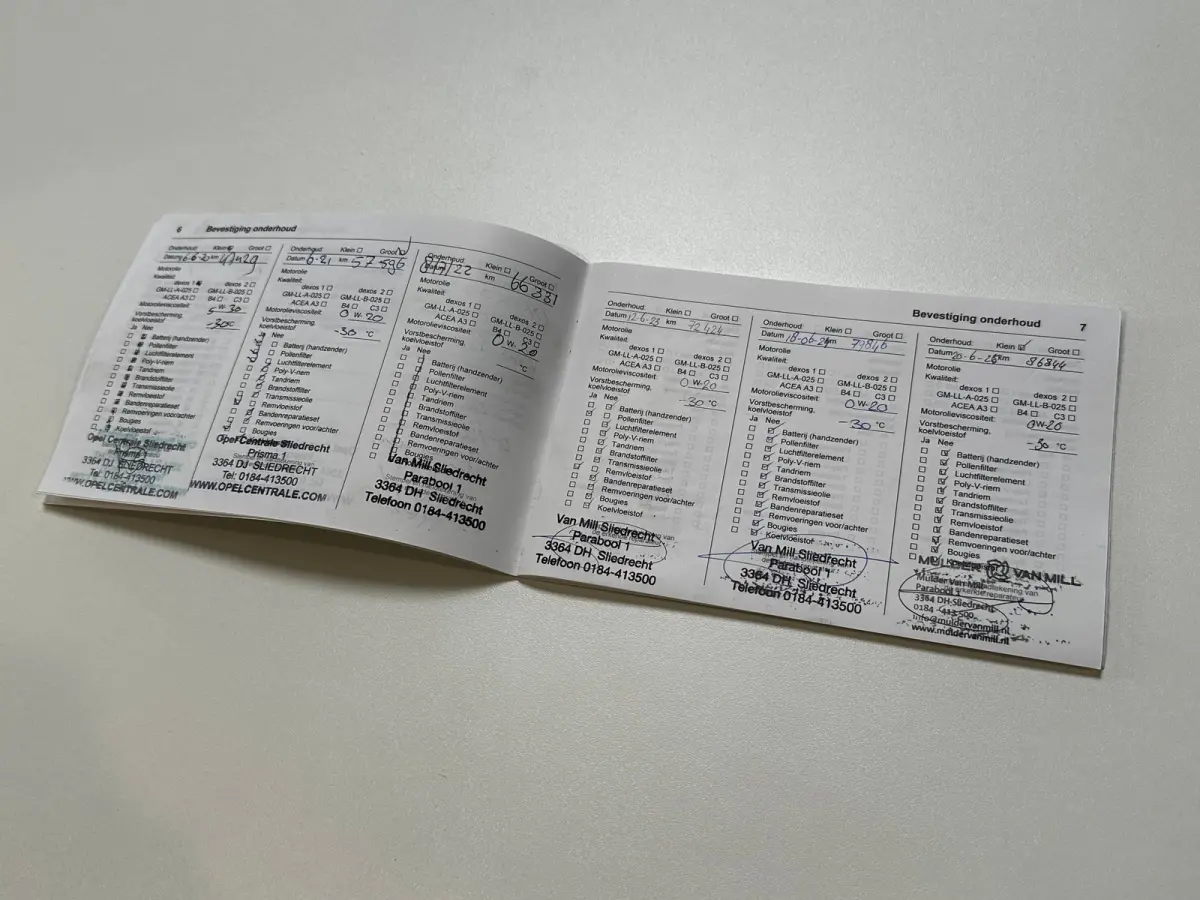 6 Bevestiging onderhoud
Onderhoud: Klein Groot
Datum km
Motorolie
Kwaliteit:
dexos 1 dexos 2
GM-LL-A-025 GM-LL-B-025
ACEA A3 B4 C3
Motorolieviscositeit:
5 W 30
Vorstbescherming,
koelvloeistof
-30°C
Ja Nee
Batterij (handzender)
Pollenfilter
Luchtfilterelement
Poly-V-riem
Tandriem
Brandstoffilter
Transmissieolie
Remvloeistof
Bandenreparatieset
Remvoeringen voor/achter
Bougies
Koelvloeistof
Opel Centrale Sliedrecht
Prisma 1
3364 DJ SLIEDRECHT
Tel: 0184-413500
WWW.OPELCENTRALE.COM
Onderhoud: Klein Groot
Datum 6-21 km 57 596
Motorolie
Kwaliteit:
dexos 1 dexos 2
GM-LL-A-025 GM-LL-B-025
ACEA A3 B4 C3
Motorolieviscositeit:
0 W-20
Vorstbescherming,
koelvloeistof
-30 °C
Ja Nee
Batterij (handzender)
Pollenfilter
Luchtfilterelement
Poly-V-riem
Tandriem
Brandstoffilter
Transmissieolie
Remvloeistof
Bandenreparatieset
Remvoeringen voor/achter
Bougies
Koelvloeistof
Opel Centrale Sliedrecht
Prisma 1
3364 DJ SLIEDRECHT
Tel: 0184-413500
WWW.OPELCENTRALE.COM
Onderhoud: Klein Groot
Datum km 66 331
Motorolie
Kwaliteit:
dexos 1 dexos 2
GM-LL-A-025 GM-LL-B-025
ACEA A3 B4 C3
Motorolieviscositeit:
0 W-20
Vorstbescherming,
koelvloeistof
°C
Ja Nee
Batterij (handzender)
Pollenfilter
Luchtfilterelement
Poly-V-riem
Tandriem
Brandstoffilter
Transmissieolie
Remvloeistof
Bandenreparatieset
Remvoeringen voor/achter
Bougies
Van Mill Sliedrecht
Parabool 1
3364 DH Sliedrecht
Telefoon 0184-413500
Bevestiging onderhoud 7
Onderhoud: Klein Groot
Datum 12-6-23 km 72 424
Motorolie
Kwaliteit:
dexos 1 dexos 2
GM-LL-A-025 GM-LL-B-025
ACEA A3 B4 C3
Motorolieviscositeit:
0 W-20
Vorstbescherming,
koelvloeistof
-30 °C
Ja Nee
Batterij (handzender)
Pollenfilter
Luchtfilterelement
Poly-V-riem
Tandriem
Brandstoffilter
Transmissieolie
Remvloeistof
Bandenreparatieset
Remvoeringen voor/achter
Bougies
Koelvloeistof
Van Mill Sliedrecht
Parabool 1
3364 DH Sliedrecht
Telefoon 0184-413500
Onderhoud: Klein Groot
Datum 18-06-24 km 79846
Motorolie
Kwaliteit:
dexos 1 dexos 2
GM-LL-A-025 GM-LL-B-025
ACEA A3 B4 C3
Motorolieviscositeit:
0 W-20
Vorstbescherming,
koelvloeistof
-30 °C
Ja Nee
Batterij (handzender)
Pollenfilter
Luchtfilterelement
Poly-V-riem
Tandriem
Brandstoffilter
Transmissieolie
Remvloeistof
Bandenreparatieset
Remvoeringen voor/achter
Bougies
Koelvloeistof
Van Mill Sliedrecht
Parabool 1
3364 DH Sliedrecht
Telefoon 0184-413500
Onderhoud: Klein Groot
Datum 20-6-25 km 86844
Motorolie
Kwaliteit:
dexos 1 dexos 2
GM-LL-A-025 GM-LL-B-025
ACEA A3 B4 C3
Motorolieviscositeit:
0W-20
Vorstbescherming,
koelvloeistof
-30 °C
Ja Nee
Batterij (handzender)
Pollenfilter
Luchtfilterelement
Poly-V-riem
Tandriem
Brandstoffilter
Transmissieolie
Remvloeistof
Bandenreparatieset
Remvoeringen voor/achter
Bougies
MULDER VAN MILL
Mulder Van Mill
Parabool
3364 DH Sliedrecht
0184 - 413 500
info@muldervanmill.nl
www.muldervanmill.nl